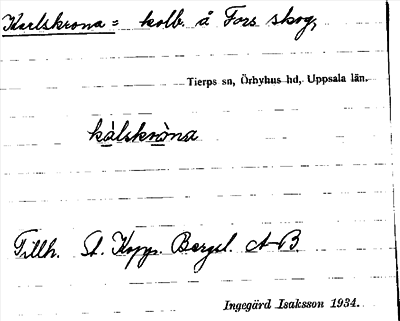 Karlskrona = kolb. å Fors skog,
Tierps sn, Örbyhus hd, Uppsala län.
kàlskròna
Tillh. St. Kopp. Bergsl. A-B
Ingegärd Isaksson 1934.